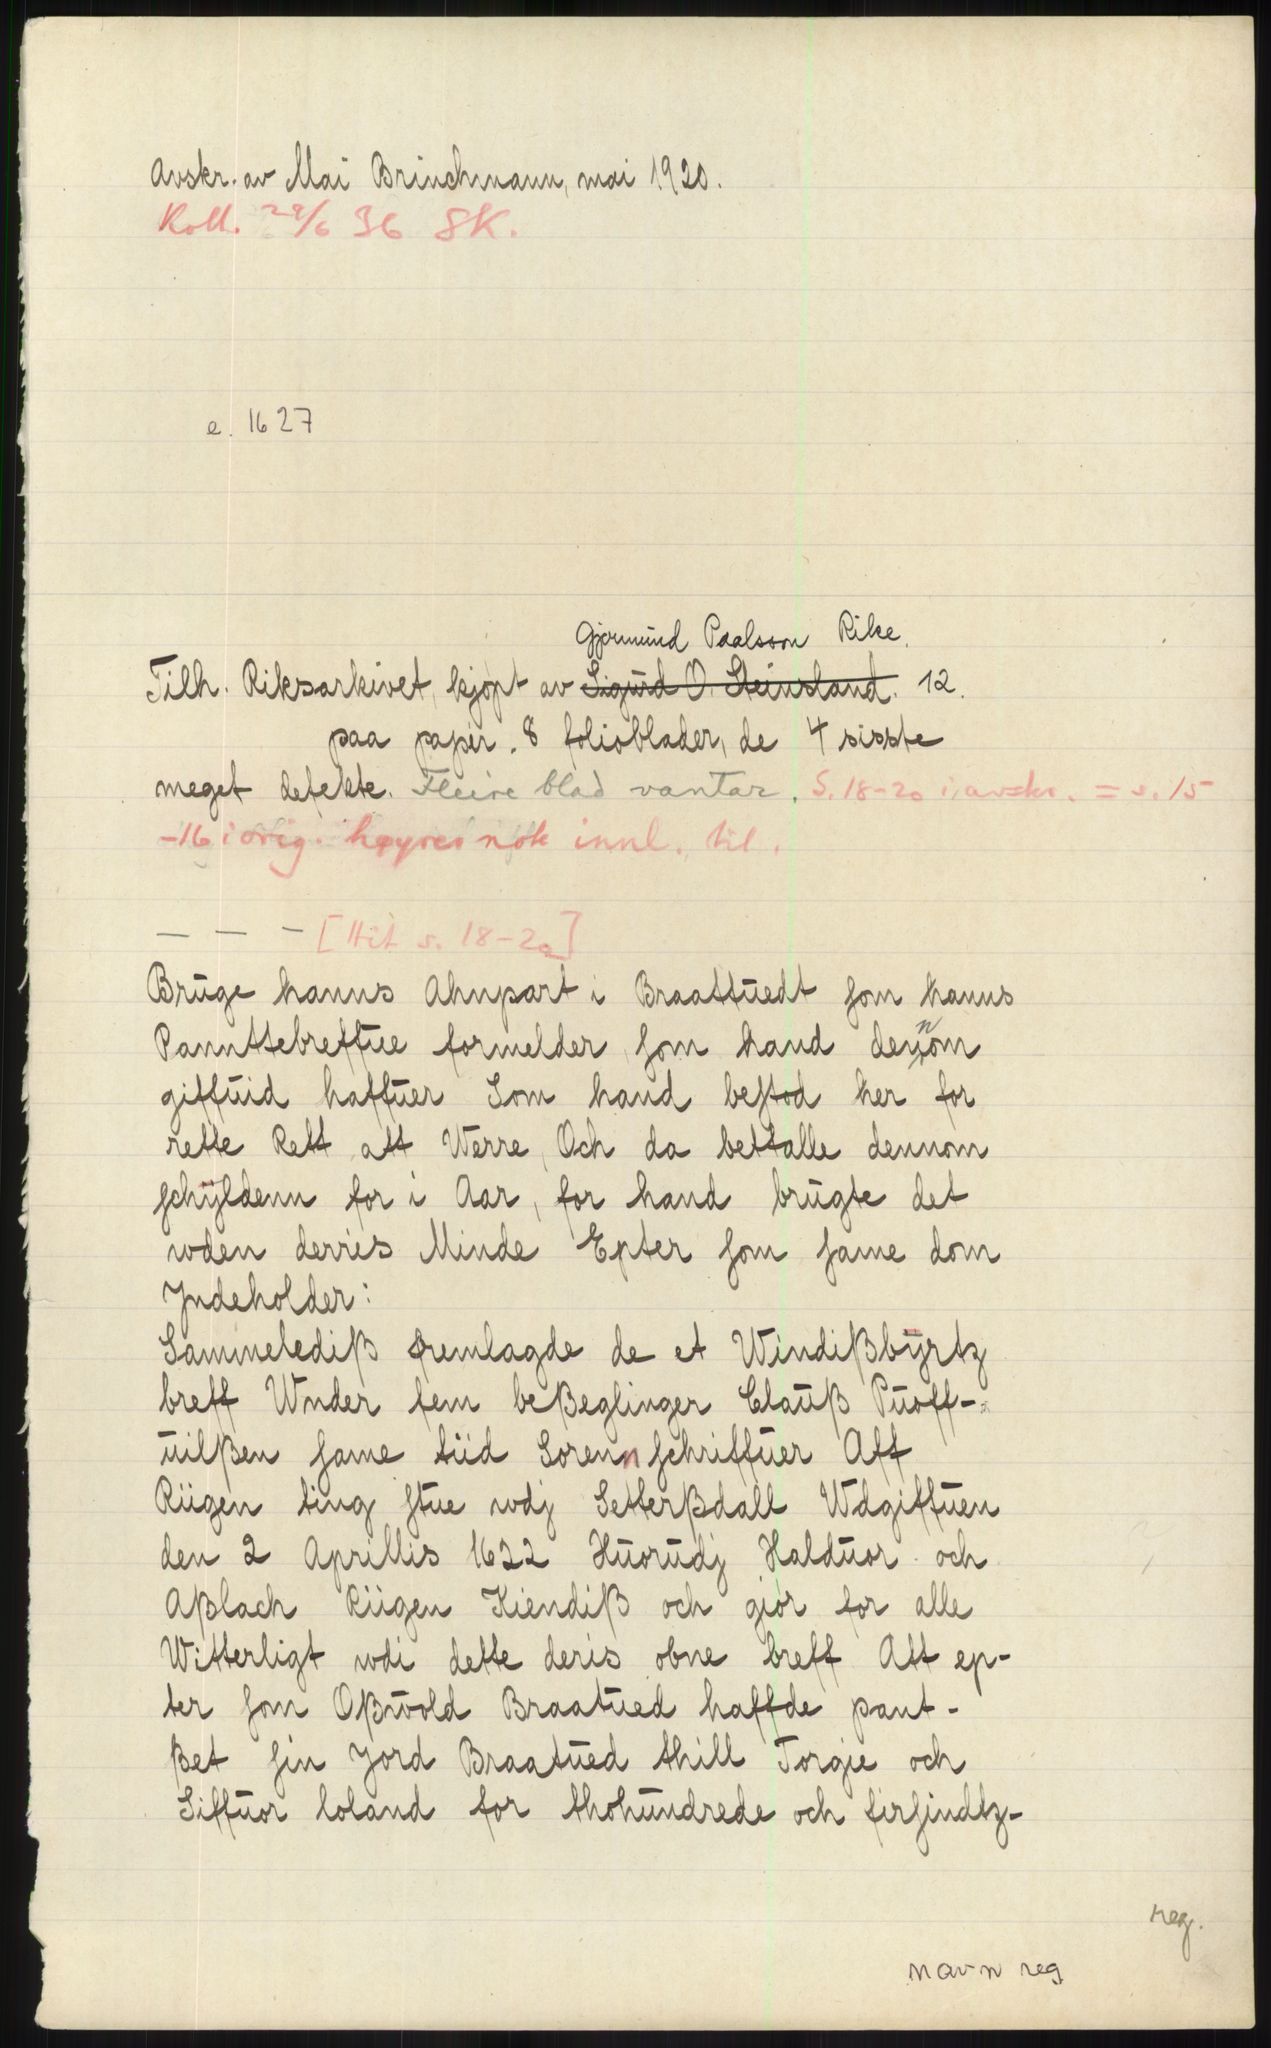 Avskr. av Mai Brinchmann, mai 1920.
Koll. 29/6 36 SK.
e. 1627
Gjermund Paalsson Rike.
Tilh. Riksarkivet, kjøpt av Sigurd O. Steinsland. 12.
paa papir. 8 folioblader, de 4 sisste
meget defekte. Fleire blad vantar. S. 18-20 i avskr. = s. 15
-16 i orig. høyrer nok innl. til.
— — — [Hit s. 18-20]
Brŭge hanns Ahnpart i Braattŭedt som hanns
Pannttebreffŭe formelder som hand dennom
giffŭid haffŭer Som hand bestod her for
rette Rett att Werre, Och da bettalle dennom
schÿldenn for i Aar, for hand brŭgte det
wden derris Minde Epter som same dom
Jndeholder:
Sammelediß fremlagde de et Windißbÿrtz
breff Wnder fem beßeglinger Claŭß Pŭoff-
ŭilßen same tiid Sorenn schriffŭer Aff
Riigen ting stue wdj Setterßdall Wdgiffŭen
den 2 Aprillis 1622 Hŭorŭdj Haldŭor och
Aßlach Riigen Kiendiß och giør for alle
Witterligt wdi dette deris obne breff Att ep-
ter som Oßwold Braatŭed haffde pant-
ßet sin Jord Braatŭed thill Torgie och
Siffŭor loland for thohŭndrede och firsindtz-
reg.
navn reg